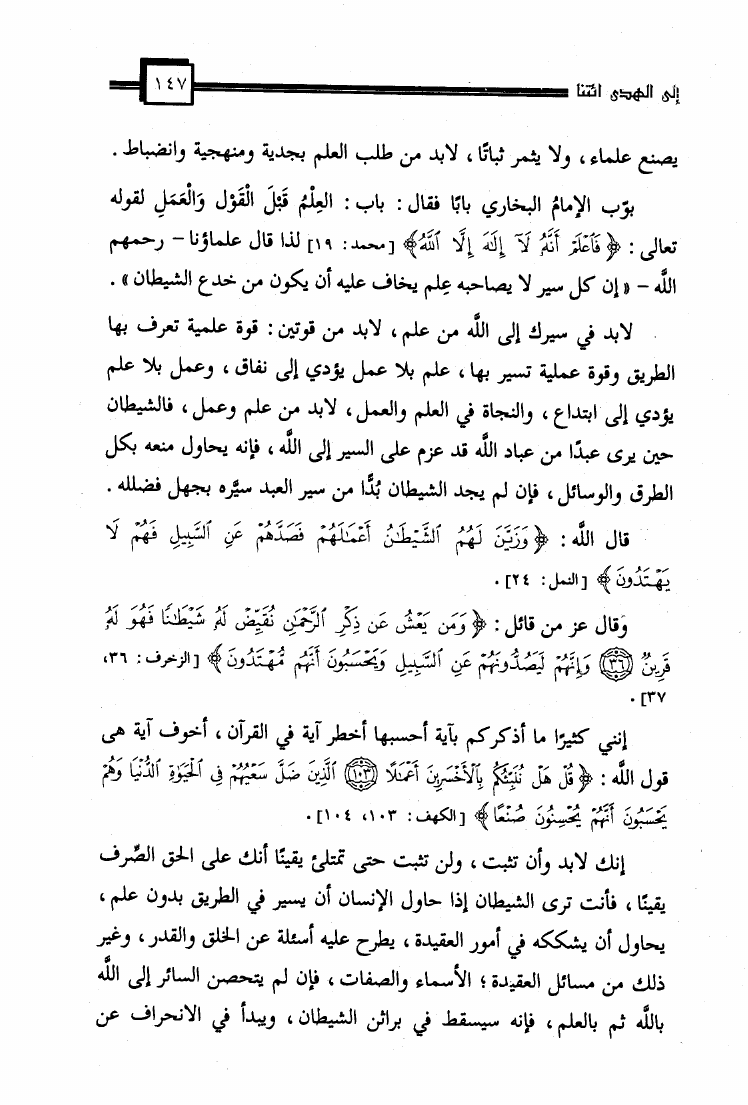 إلى الهدى ائتنا ١٤٧
يصنع علماء، ولا يثمر ثباتًا، لابد من طلب العلم بجدية ومنهجية وانضباط.
بوّب الإمامُ البخاري بابًا فقال: باب: العِلْمُ قَبْلَ الْقَوْل وَالْعَمَلِ لقوله
تعالى: ﴿فَٱعْلَمْ أَنَّهُۥ لَآ إِلَٰهَ إِلَّا ٱللَّهُ﴾ [محمد: ١٩] لذا قال علماؤنا - رحمهم
اللَّه - «إن كل سير لا يصاحبه عِلم يخاف عليه أن يكون من خدع الشيطان».
لابد في سيرك إلى اللَّه من علم، لابد من قوتين: قوة علمية تعرف بها
الطريق وقوة عملية تسير بها، علم بلا عمل يؤدي إلى نفاق، وعمل بلا علم
يؤدي إلى ابتداع، والنجاة في العلم والعمل، لابد من علم وعمل، فالشيطان
حين يرى عبدًا من عباد اللَّه قد عزم على السير إلى اللَّه، فإنه يحاول منعه بكل
الطرق والوسائل، فإن لم يجد الشيطان بُدًّا من سير العبد سيَّره بجهل فضلله.
قال اللَّه: ﴿وَزَيَّنَ لَهُمُ ٱلشَّيْطَٰنُ أَعْمَٰلَهُمْ فَصَدَّهُمْ عَنِ ٱلسَّبِيلِ فَهُمْ لَا
يَهْتَدُونَ﴾ [النمل: ٢٤].
وقال عز من قائل: ﴿وَمَن يَعْشُ عَن ذِكْرِ ٱلرَّحْمَٰنِ نُقَيِّضْ لَهُۥ شَيْطَٰنًا فَهُوَ لَهُۥ
قَرِينٌ ٣٦ وَإِنَّهُمْ لَيَصُدُّونَهُمْ عَنِ ٱلسَّبِيلِ وَيَحْسَبُونَ أَنَّهُم مُّهْتَدُونَ﴾ [الزخرف: ٣٦،
٣٧].
إنني كثيرًا ما أذكركم بآية أحسبها أخطر آية في القرآن، أخوف آية هى
قول اللَّه: ﴿قُلْ هَلْ نُنَبِّئُكُم بِٱلْأَخْسَرِينَ أَعْمَٰلًا ١٠٣ ٱلَّذِينَ ضَلَّ سَعْيُهُمْ فِي ٱلْحَيَوٰةِ ٱلدُّنْيَا وَهُمْ
يَحْسَبُونَ أَنَّهُمْ يُحْسِنُونَ صُنْعًا﴾ [الكهف: ١٠٣، ١٠٤].
إنك لابد وأن تثبت، ولن تثبت حتى تمتلئ يقينًا أنك على الحق الصِّرف
يقينًا، فأنت ترى الشيطان إذا حاول الإنسان أن يسير في الطريق بدون علم،
يحاول أن يشككه في أمور العقيدة، يطرح عليه أسئلة عن الخلق والقدر، وغير
ذلك من مسائل العقيدة؛ الأسماء والصفات، فإن لم يتحصن السائر إلى اللَّه
باللَّه ثم بالعلم، فإنه سيسقط في براثن الشيطان، ويبدأ في الانحراف عن